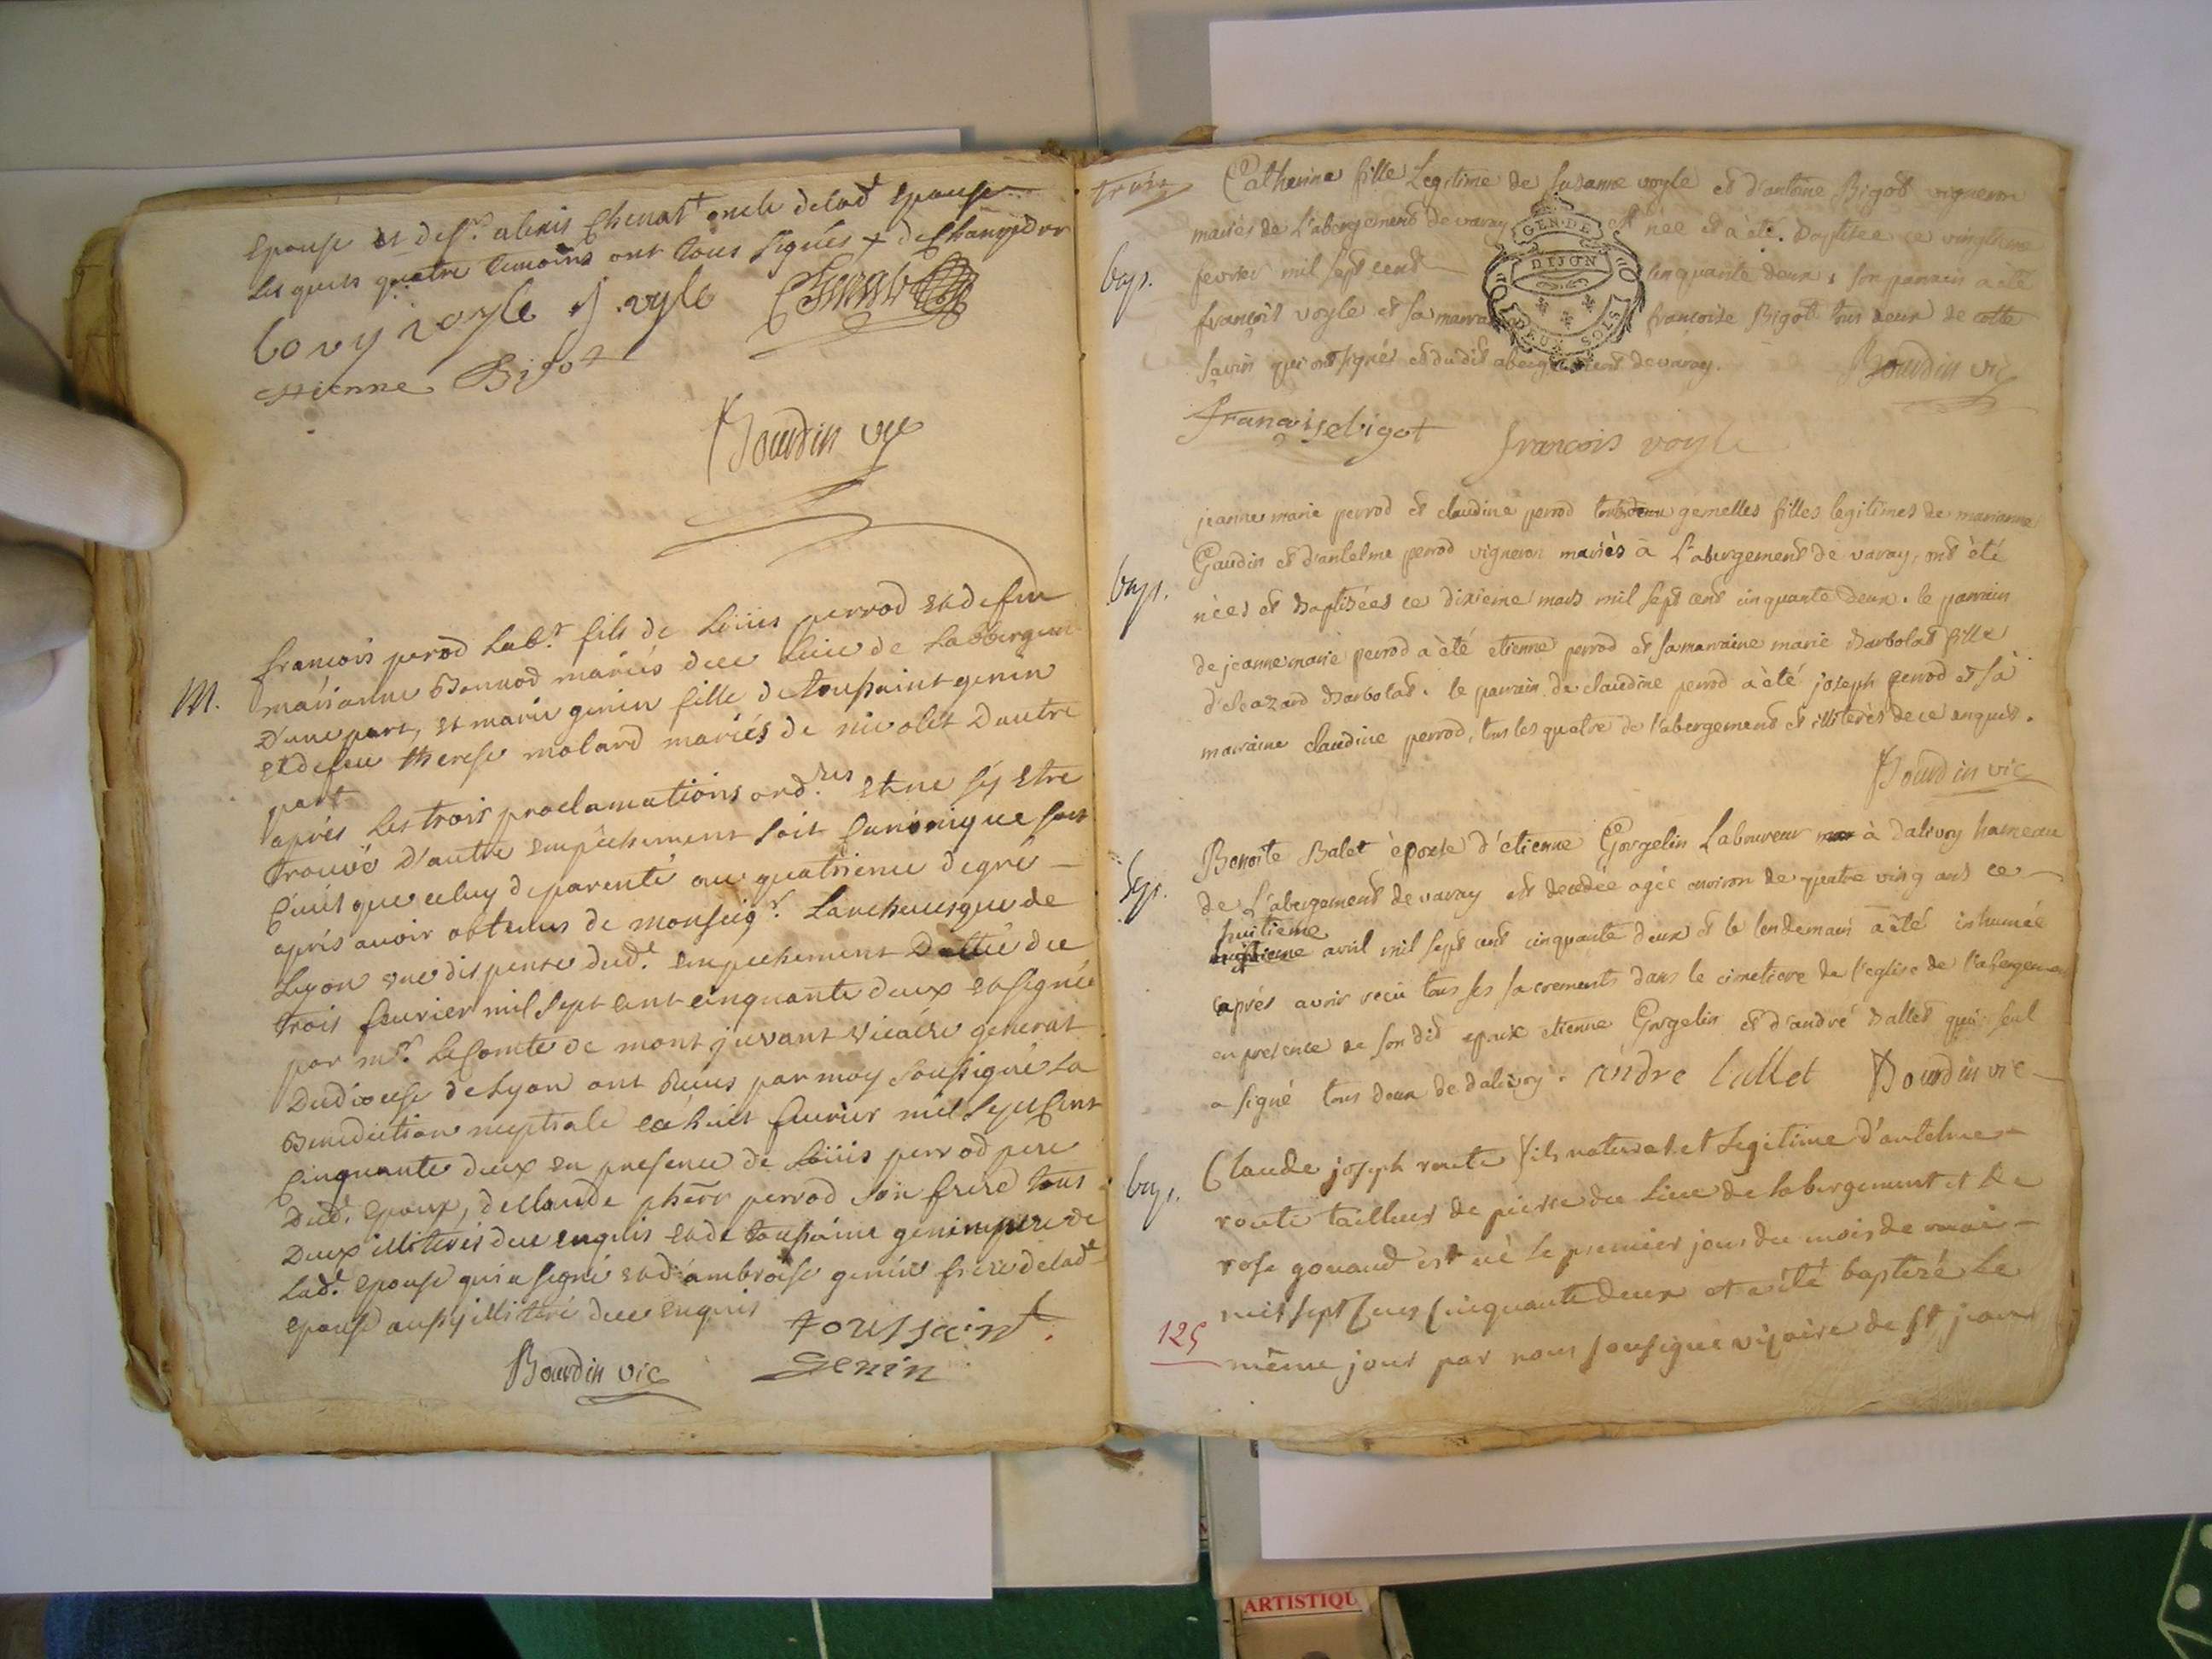 Epouse et de sr. alexis Chenat oncle de lad. Epouse
Lesquels quatre temoins ont tous signés
voyle j. voyle
etienne Bigot
Bourdin vic
M.
francois perrod Labr. fils de Loüis perrod et de feu
marianne Bonnod mariés du lieu de Labbergem.
D'une part, et marie genin fille de toussaint genin
et de feu therese molard mariés de nivolet D'autre
part
après Les trois proclamations ord.res et ne s'y estre
trouvé D'autre empêchement soit Canonique soit
Civil que celuy de parenté au quatrieme degré
après avoir obtenus de monseigr. Larchevesque de
Lyon une dispense dud. empechement Dattée du
trois fevrier mil sept cent cinquante deux et signée
par mr. Le Comte de montjuvant vicaire general
Dudiocese de Lyon ont Reçus par moy soussigné La
Benediction nuptiale ce huit fevrier mil sept Cent
Cinquante deux en presence de Loüis perrod pere
Dud. epoux, de Claude perrod son frere tous
Deux illiterés de ce enquis et de toussaint genin pere de
Lad. epouse qui a signé et d'ambroise genin frere de lad.
epouse aussy illiteré de ce enquis
toussaint
genin
Bourdin vic
trois
Catherine fille Legitime de Susanne voyle et d'antoine Bigot vigneron
mariés de L'abergement de varay née et a été. Baptisée ce
GEN. DE
DIJON
DEUX SOLS
bap.
fevrier mil sept cent cinquante deux, son parrain a été
françois voyle et sa marraine francoise Bigot tous deux de
qui ont signés et dudit abergement de varay.
Bourdin vic
francoise bigot
francois voyle
bap.
jeanne marie perrod et claudine perrod gemelles filles legitimes de marianne
Gaudin et d'antelme perrod vigneron mariés à L'abergement de varay, ont été
nées et Baptisées ce dixieme mars mil sept cent cinquante deux. le parrain
de jeanne marie perrod a été etienne perrod et sa marraine marie Barbolat fille
Barbolat. le parrain de claudine perrod a été joseph perrod et sa
marraine claudine perrod, tous les quatre de l'abergement et illiterés de ce enquis.
Bourdin vic
Sep.
Benoite Balet épouse d'etienne Gorgelin Laboureur à dalivoy hameau
de L'abergement de varay est decedée agée environ de quatre ving ans ce
huitieme
avril mil sept cent cinquante deux et le lendemain a été inhumée
après avoir reçu tous ses sacrements dans le cimetiere de l'eglise de l'abergement
en presence de son dit epoux etienne Gorgelin et d'andré Ballet qui seul
a signé tous deux de dalivoy. andre ballet Bourdin vic
bap.
Claude joseph route fils naturel et Legitime d'antelme
route tailleur de pierre du Lieu de Labergement et de
rose gouaud est né le premier jour du mois de mai
mil sept Cens Cinquante deux et a été baptizé Le
125
même jour par nous sousigné vicaire de St jean
ARTISTIQU